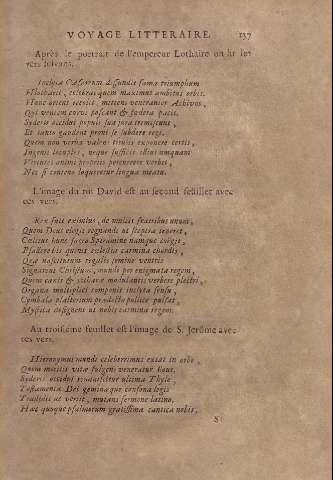 VOYAGE LITTERAIRE 137
Après le portrait de l'empereur Lothaire on lit les
vers suivans.
Inclyta Cæsareum diffundit fama triumphum
Hlotharii, celebrat quem maximus ambitus orbis.
Hunc orient recolit, mittens veneranter Achivos,
Qui veniam curvis poscant & fœdera pacis.
Syderis occidui populi sua jura remittunt,
Et tanto gaudent proni se subdere regi.
Quem non verba valent titulis exponere certis,
Ingenii locuples, neque sufficit ullus unquam
Virtutes animi properis percurrere verbis,
Nec si centeno loqueretur lingua meatu.
L'image du roi David est au second feüillet avec
ces vers.
Rex fuit eximius, de multis fratribus unus,
Quem Deus elegit regnandi ut sceptra teneret,
Cœlitus hunc sacro Spiramine namque coegit
Psalterobis quinis celestia carmina chordis,
Quæ nasciturum regali semine ventris
Signarent Christum, mundi per enigmata regem,
Quem canit & cytharæ modulantis verbere plectri,
Organa multiplici componit inclyta sensu,
Cymbala psalterium prædocto pollice pulsat,
Mystica designent ut nobis carmina regem.
Au troisiéme feüillet est l'image de S. Jerôme avec
ces vers.
Hieronymus mundi celeberrimus extat in orbe,
Quem meritis vitæ fulgens veneratur hous,
Syderis occidui mutatur ultima Thyle,
Testamenta Dei geminaque confona legis
Tradidit ac vertit, mutans sermone latino,
Hac quoque psalmorum gratissima cantica nobis,
S